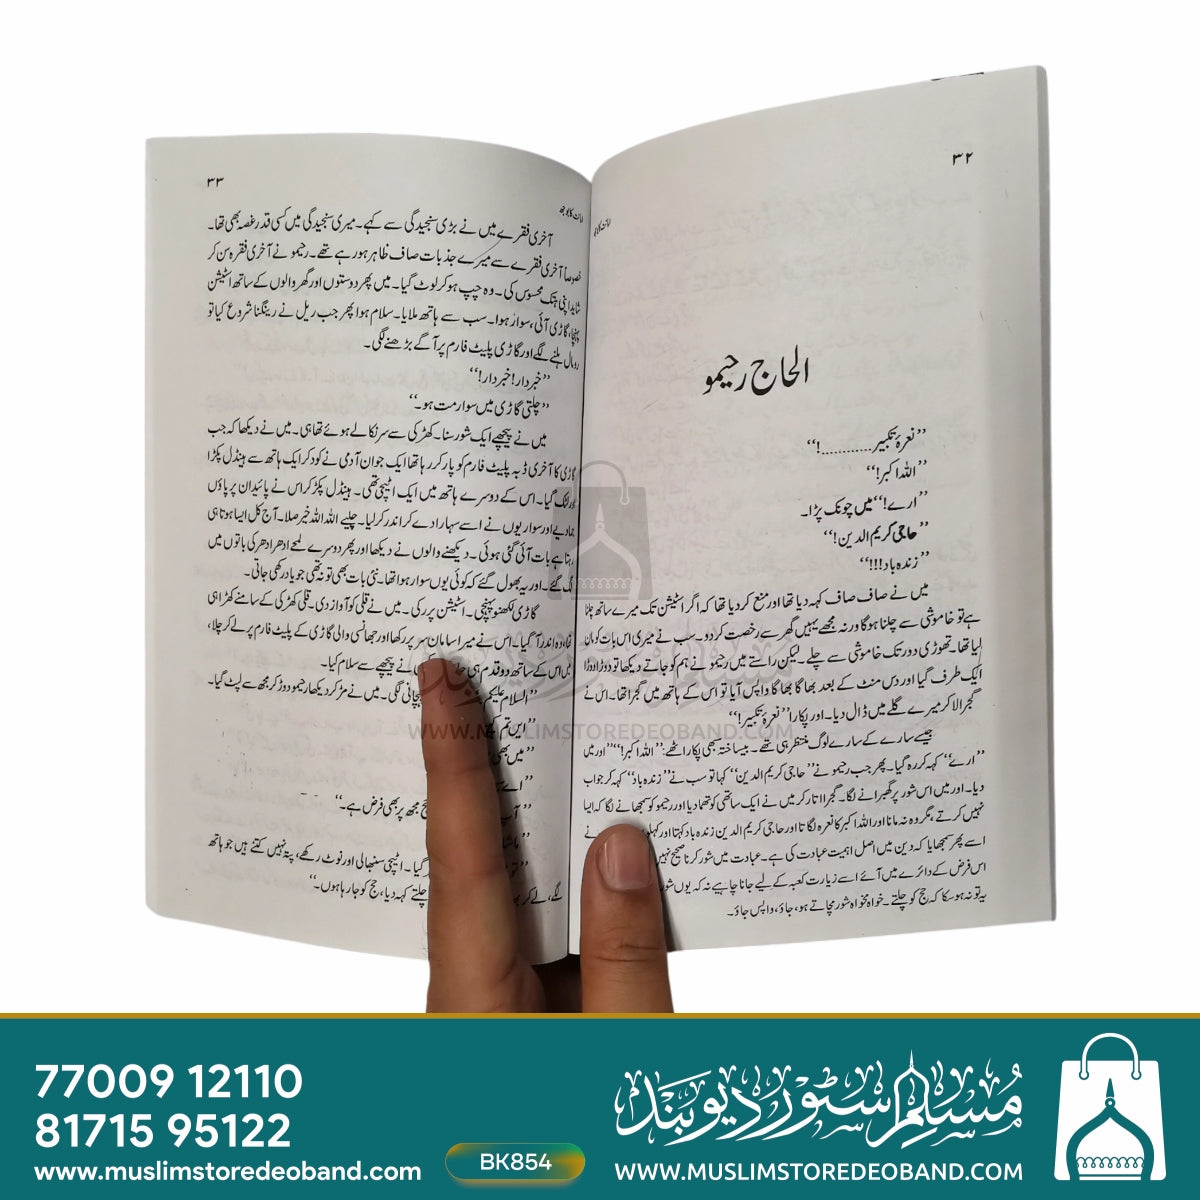 ۳۲
امانت کا بوجھ
الحاج رحیمو
”نعرۂ تکبیر............!“
”اللہ اکبر!“
”ارے!“ میں چونک پڑا۔
”حاجی کریم الدین!“
”زندہ باد!!!“
میں نے صاف صاف کہہ دیا تھا اور منع کر دیا تھا کہ اگر اسٹیشن تک میرے ساتھ چلنا
ہے تو خاموشی سے چلنا ہوگا ورنہ مجھے یہیں گھر سے رخصت کر دو۔ سب نے میری اس بات کو مان
لیا تھا۔ تھوڑی دور تک خاموشی سے چلے۔ لیکن راستے میں ریمو نے ہم کو جاتے دیکھا تو دوڑا دوڑا
ایک طرف گیا اور دس منٹ کے بعد بھاگا بھاگا واپس آیا تو اس کے ہاتھ میں گجرا تھا۔ اس نے
گجرا لا کر میرے گلے میں ڈال دیا۔ اور پکارا ”نعرۂ تکبیر!“
جیسے سارے کے سارے لوگ منتظر ہی تھے۔ بیساختہ سبھی پکار اٹھے: ”اللہ اکبر!“ اور میں
”ارے“ کہہ کر رہ گیا۔ پھر جب رحیمو نے ”حاجی کریم الدین“ کہا تو سب نے ”زندہ باد“ کہہ کر جواب
دیا۔ اور میں اس شور پر گھبرانے لگا۔ گجرا اتار کر میں نے ایک ساتھی کو تھما دیا اور رحیمو کو سمجھانے لگا کہ ایسا
نہیں کرتے، مگر وہ نہ مانا اور اللہ اکبر کا نعرہ لگاتا اور حاجی کریم الدین زندہ باد کہتا اور کہلو نے
اسے پھر سمجھایا کہ دین میں اصل اہمیت عبادت کی ہے۔ عبادت میں شور کرنا صحیح نہیں
اس فرض کے دائرے میں آئے اسے زیارت کعبہ کے لیے جانا چاہیے نہ کہ یوں شور
یہ تو نہ ہو سکا کہ حج کو چلتے۔ خواہ مخواہ شور مچاتے ہو، جاؤ، واپس جاؤ۔
۳۳
امانت کا بوجھ
آخری فقرے میں نے بڑی سنجیدگی سے کہے۔ میری سنجیدگی میں کسی قدر غصہ بھی تھا۔
خصوصاً آخری فقرے سے میرے جذبات صاف ظاہر ہو رہے تھے۔ رحیمو نے آخری فقرہ سن کر
شاید اپنی ہتک محسوس کی۔ وہ چپ ہو کر لوٹ گیا۔ میں پھر دوستوں اور گھر والوں کے ساتھ اسٹیشن
پہنچا، گاڑی آئی، سوار ہوا۔ سب سے ہاتھ ملایا۔ سلام ہوا پھر جب ریل نے رینگنا شروع کیا تو
رومال ہلنے لگے اور گاڑی پلیٹ فارم پر آگے بڑھنے لگی۔
”خبردار! خبردار!“
”چلتی گاڑی میں سوار مت ہو۔“
میں نے پیچھے ایک شور سنا۔ کھڑکی سے سر نکالے ہوئے تھا ہی۔ میں نے دیکھا کہ جب
گاڑی کا آخری ڈبہ پلیٹ فارم کو پار کر رہا تھا ایک جوان آدمی نے کود کر ایک ہاتھ سے ہینڈل پکڑا
اور لٹک گیا۔ اس کے دوسرے ہاتھ میں ایک اٹیچی تھی۔ ہینڈل پکڑ کر اس نے پائیدان پر پاؤں
جما دیے اور سواریوں نے اسے سہارا دے کر اندر کر لیا۔ چلیے اللہ اللہ خیر صلا۔ آج کل ایسا ہوتا ہی
رہتا ہے بات آئی گئی ہوئی۔ دیکھنے والوں نے دیکھا اور پھر دوسرے لمحے ادھر ادھر کی باتوں میں
لگ گئے۔ اور یہ بھول گئے کہ کوئی یوں سوار ہوا تھا۔ نئی بات بھی تو نہ تھی جو یاد رکھی جاتی۔
گاڑی لکھنؤ پہنچی۔ اسٹیشن پر رکی۔ میں نے قلی کو آواز دی۔ قلی کھڑکی کے سامنے کھڑا ہی
تھا، وہ اندر آ گیا۔ اس نے میرا سامان سر پر رکھا، اور جھانسی والی گاڑی کے پلیٹ فارم پر لے کر چلا،
میں اس کے ساتھ دو قدم ہی چلا نے پیچھے سے سلام کیا۔
”السلام علیکم پہچانی لگی۔ میں نے مڑ کر دیکھا رحیمو دوڑ کر مجھ سے لپٹ گیا۔
”ایں تم
”میں بھی
”اے
آپ حج مجھ پر بھی فرض ہے۔“
”ماشا
”تو گیا۔ اٹیچی سنبھالی اور نوٹ رکھے، پتہ نہیں کتنے ہیں جو ہاتھ
لگے، لے کر چلتے کہہ دیا، حج کو جا رہا ہوں۔“
مسلم سٹور دیوبند
WWW.MUSLIMSTOREDEOBAND.COM
77009 12110
81715 95122
www.muslimstoredeoband.com
BK854
مسلم سٹور دیوبند
WWW.MUSLIMSTOREDEOBAND.COM